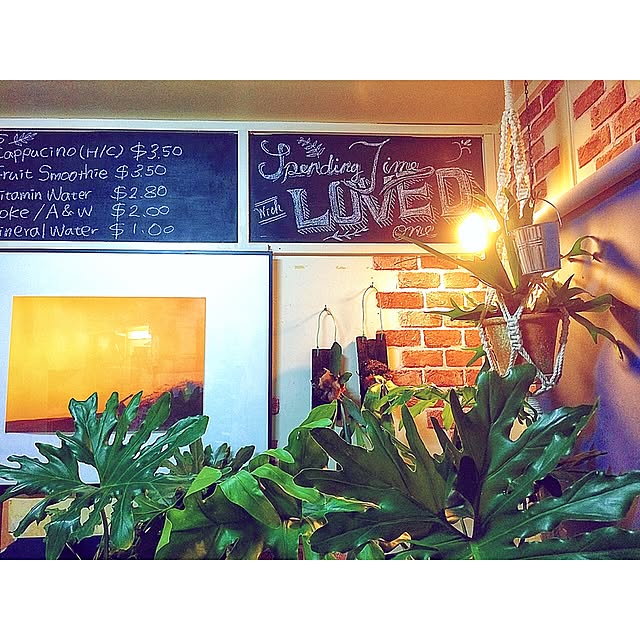 appucino (H/C) $3.50
ruit Smoothie $3.50
itamin Water $2.80
oke / A&W $2.00
ineral Water $1.00
Spending Time
With
LOVED
One